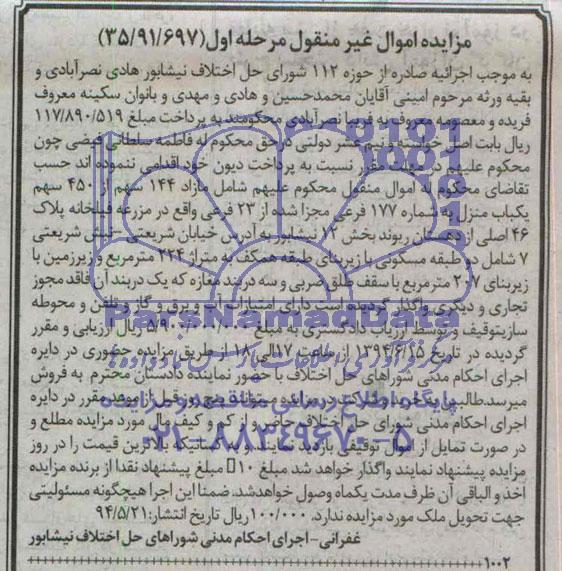 مزایده اموال غیر منقول مرحله اول(۳۵/۹۱/۶۹۷)
به موجب اجرائیه صادره از حوزه ۱۱۲ شورای حل اختلاف نیشابور هادی نصرآبادی و
بقیه ورثه مرحوم امینی آقایان محمدحسین و هادی و مهدی و بانوان سکینه معروف
فریده و معصومه معروف به فریبا نصرآبادی محکومند به پرداخت مبلغ ۱۱۷/۸۹۰/۵۱۹
ریال بابت اصل خواسته و نیم عشر دولتی درحق محکوم له فاطمه سلطانی فیضی چون
محکوم علیهم در مهلت مقرر نسبت به پرداخت دیون خود اقدامی ننموده اند حسب
تقاضای محکوم له اموال منقول محکوم علیهم شامل مازاد ۱۴۴ سهم از ۴۵۰ سهم
یکباب منزل به شماره ۱۷۷ فرعی مجزا شده از ۲۳ فرعی واقع در مزرعه فیلخانه پلاک
۴۶ اصلی از دهستان ریوند بخش ۱۲ نیشابور به آدرس خیابان شریعتی –نبش شریعتی
۷ شامل دو طبقه مسکونی با زیربنای طبقه همکف به متراژ ۲۲۴ مترمربع و زیرزمین با
زیربنای ۲۰۷ مترمربع با سقف طاق ضربی و سه دربند مغازه که یک دربند آن فاقد مجوز
تجاری و دیگری واگذار گردیده است دارای امتیازات آب و برق و گاز و تلفن و محوطه
سازیتوقیف و توسط ارزیاب دادگستری به مبلغ ریال ارزیابی و مقرر
گردیده در تاریخ ۱۳۹۴/۶/۱۵ از ساعت ۱۷الی۱۸ از طریق مزایده حضوری در دایره
اجرای احکام مدنی شوراهای حل اختلاف با حضور نماینده دادستان محترم به فروش
میرسد.طالبین خرید و شرکت در مزایده میتوانند پنج روز قبل از موعد مقرر در دایره
اجرای احکام مدنی شورای حل اختلاف حاضر و از کم و کیف مال مورد مزایده مطلع و
در صورت تمایل از اموال توقیفی بازدید نمایند و به کسانیکه بالاترین قیمت را در روز
مزایده پیشنهاد نمایند واگذار خواهد شد مبلغ ۱۰ مبلغ پیشنهاد نقدا از برنده مزایده
اخذ و الباقی آن ظرف مدت یکماه وصول خواهدشد. ضمنا این اجرا هیچگونه مسئولیتی
جهت تحویل ملک مورد مزایده ندارد. ۱۰۰/۰۰۰ریال تاریخ انتشار: ۹۴/۵/۲۱
غفرانی-اجرای احکام مدنی شوراهای حل اختلاف نیشابور
۱۰۰۲
ParsNamadData
پایگاه اطلاع رسانی مناقصه و مزایده
۰۲۱-۸۸۳۴۹۶۷۰-۵